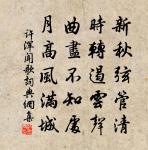 新秋弦管清
時轉遏雲聲
曲盡不知處
月高風滿城
許渾聞歌詞典網集